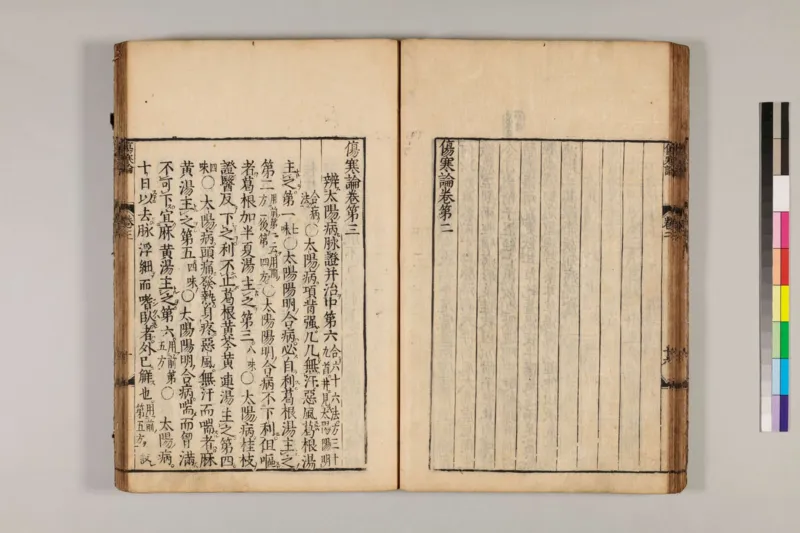 傷寒論卷第二
傷寒論卷第三
辨太陽病脉證并治中第六 合六十六法方三十九首并見太陽陽明
合病法 ○太陽病項背强几几無汗惡風葛根湯
主之第一 七味 ○太陽陽明合病必自利葛根湯主之
第二 用前第一方一云用後第四方 ○太陽陽明合病不下利但嘔
者葛根加半夏湯主之第三 八味 ○太陽病桂枝
證醫反下之利不止葛根黃芩黃連湯主之第四
四味 ○太陽病頭痛發熱身疼惡風無汗而喘者麻
黃湯主之第五 四味 ○太陽陽明合病喘而胷滿
不可下宜麻黃湯主之第六 用前第五方 ○太陽病
十日以去脉浮細而嗜臥者外已解也 用前第五方
傷寒論
卷三
傷寒論
卷二